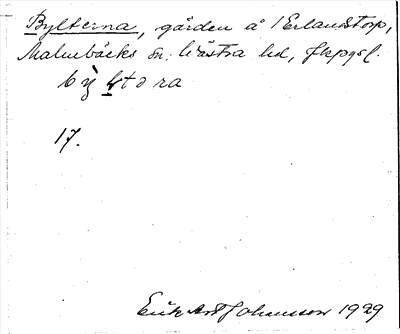 Bylterna, gården å 1 Erlandstorp,
Malmbäcks sn: Västra hd, Jkpgsl.
bỳltəra
17.
Erik Art Johansson 1929